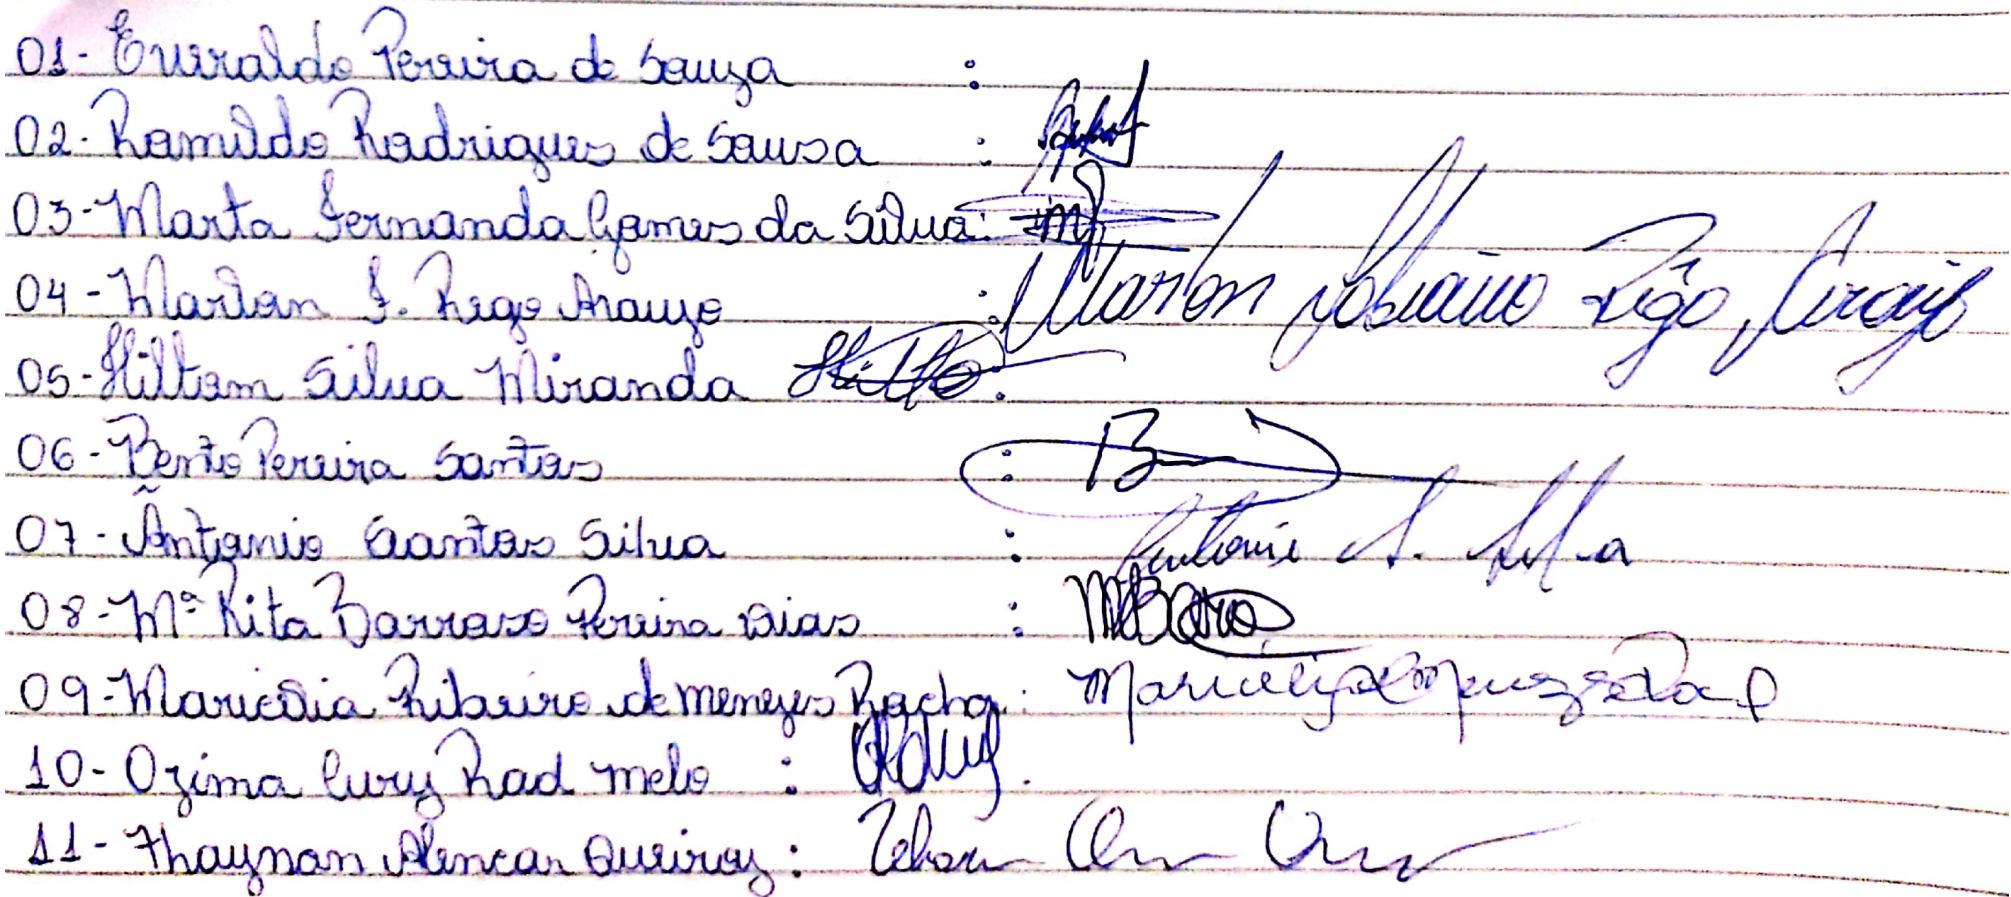 01- Everaldo Pereira de Souza :
02- Ramildo Rodrigues de Sousa :
03- Marta Fernanda Gomes da Silva:
04- Marlon F. Rego Araujo : Marlon Fabiano Rêgo Araujo
05- Hiltam Silva Miranda :
06- Bento Pereira Santos : B
07- Antonio Santos Silva : Antonio S. Silva
08- Mª Rita Barroso Pereira Dias :
09- Maricélia Ribeiro de Menezes Rocha:
10- Ozima Cury Rad Melo :
11- Thaynan Alencar Queiroz: